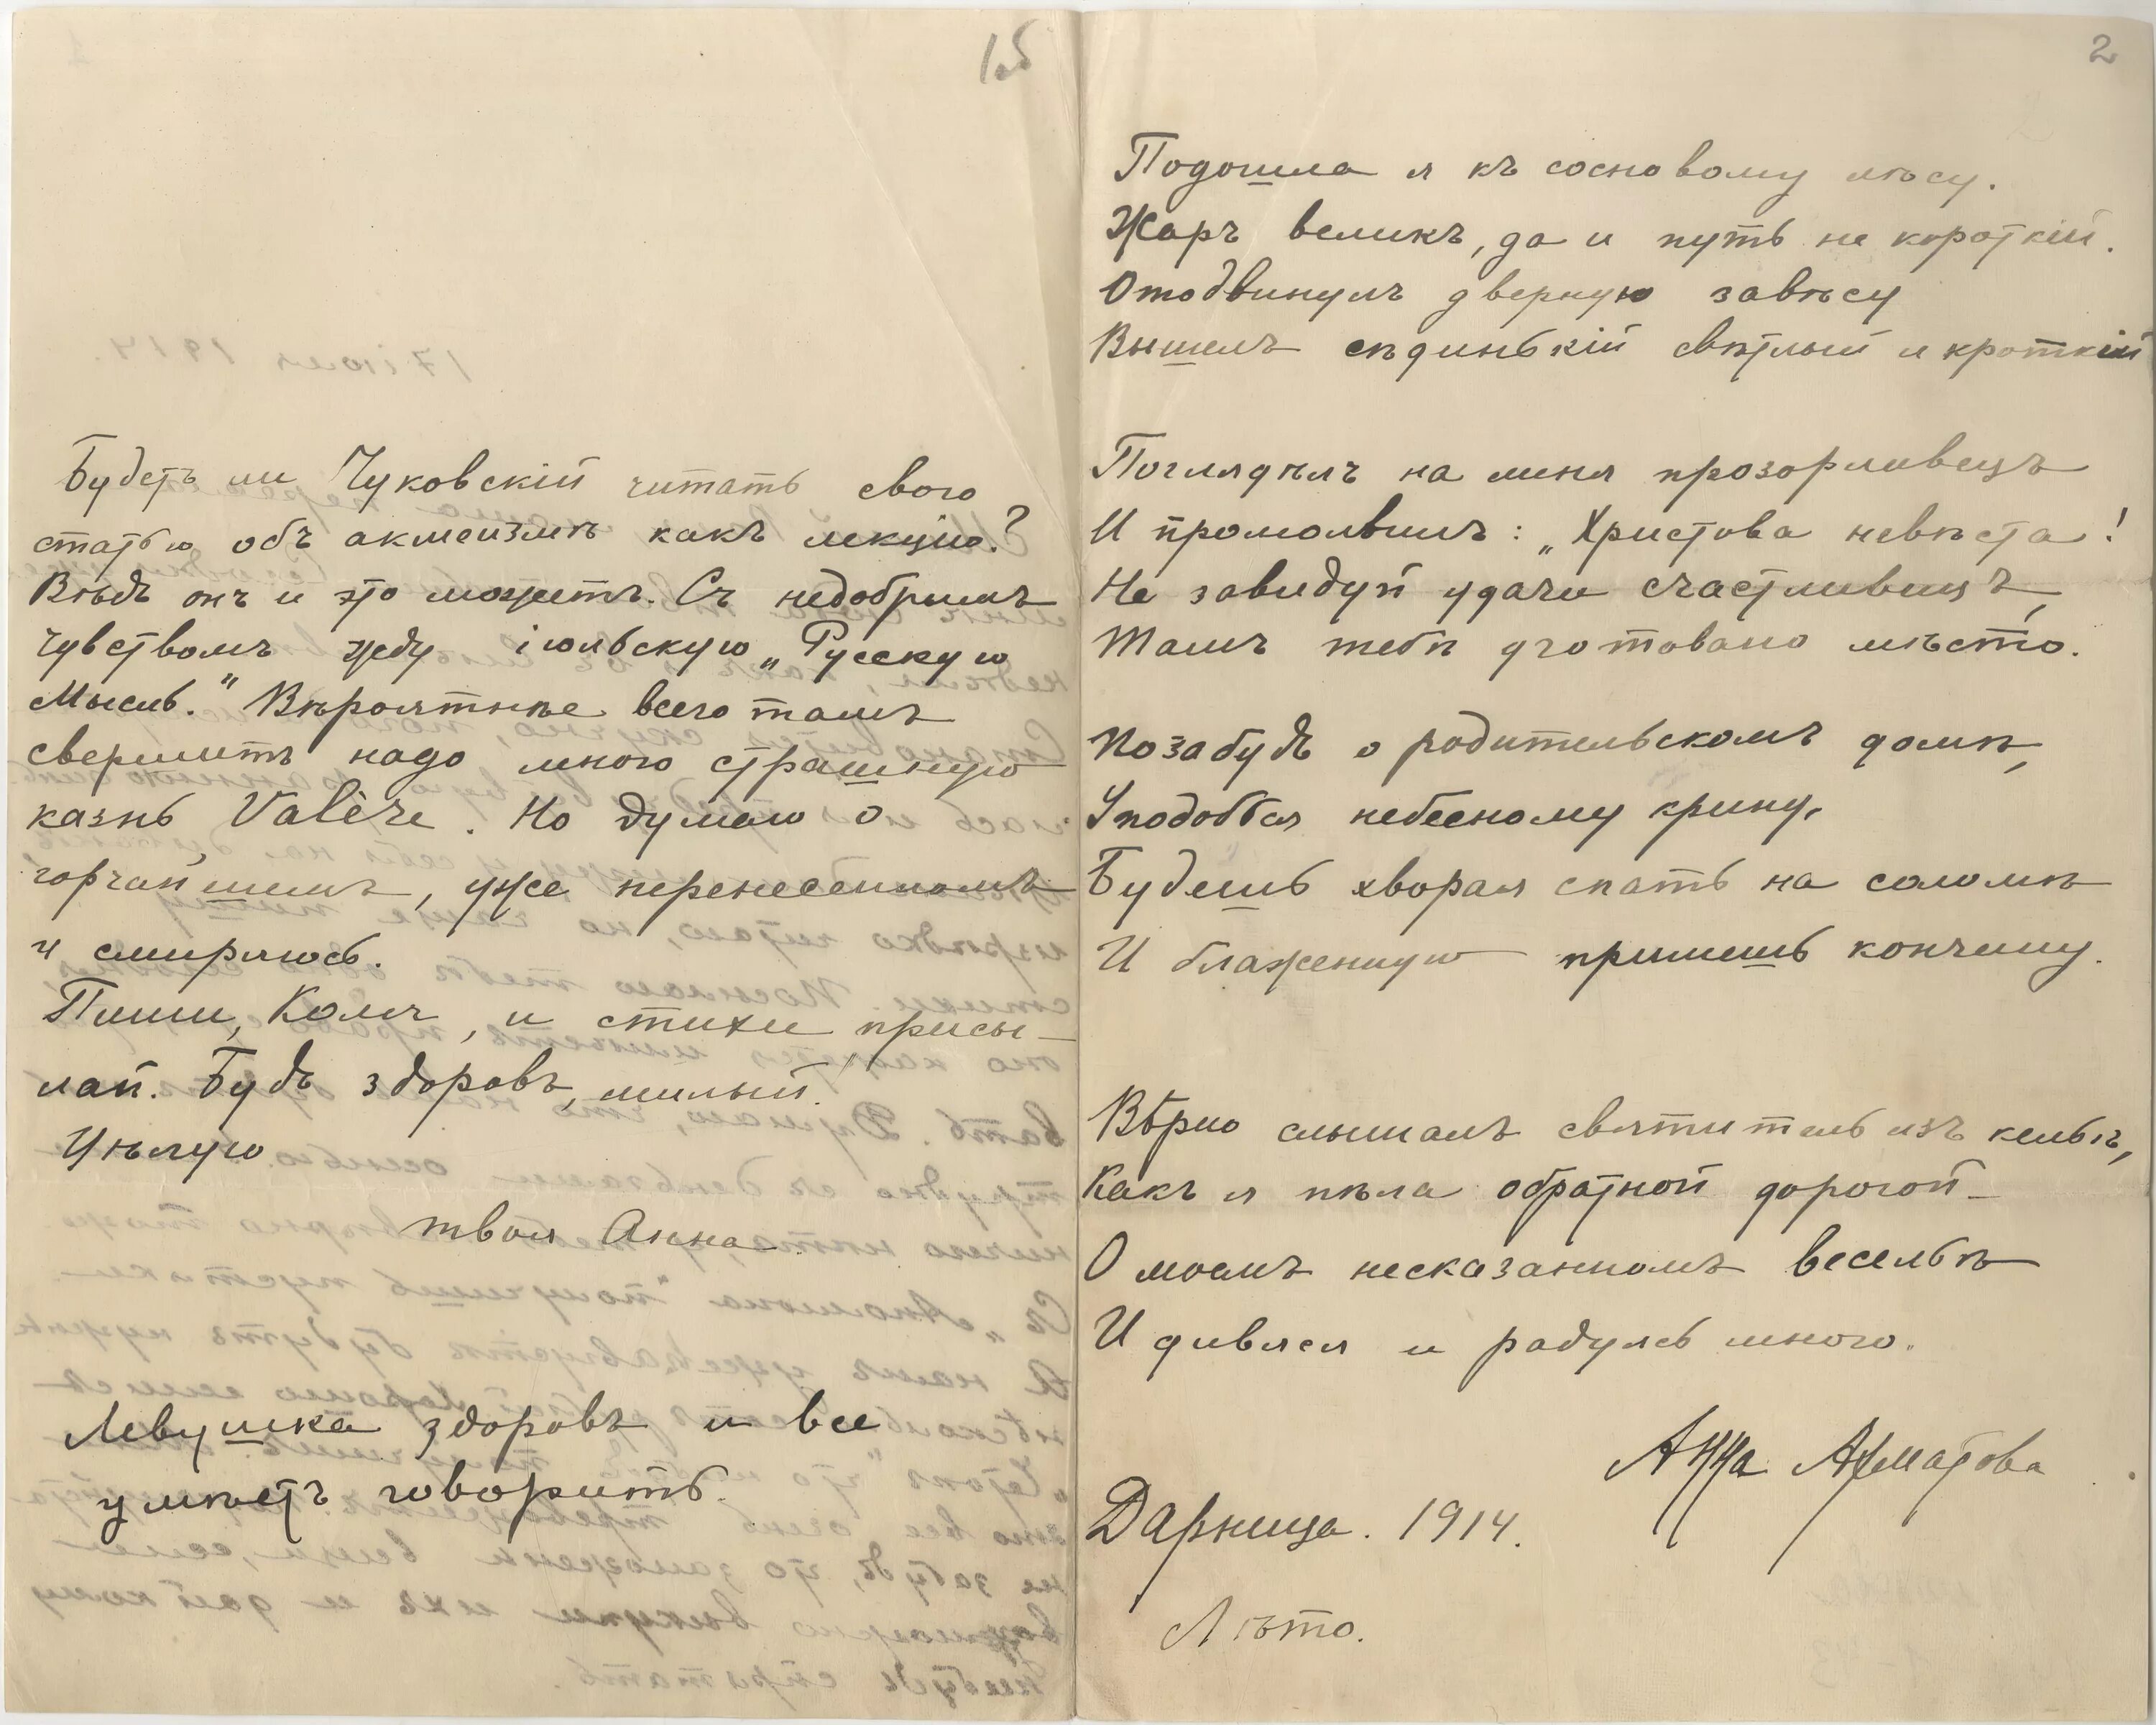 1об
Будетъ ли Чуковскій читать свою
статью объ акмеизмѣ какъ лекцію?
Вѣдь онъ и это можетъ. Съ недобрымъ
чувствомъ жду іюльскую „Русскую
Мысль." Вѣроятнѣе всего тамъ
свершитъ надо мною страшную
казнь Valère. Но думаю о
горчайшемъ, уже перенесенномъ
и смиряюсь.
Пиши, Коля, и стихи присы-
лай. Будь здоровъ, милый.
Цѣлую
твоя Анна.
Левушка здоровъ и все
умѣетъ говорить.
2
Подошла я къ сосновому лѣсу.
Жаръ великъ, да и путь не короткій.
Отодвинулъ дверную завѣсу
Вышелъ сѣдинькій свѣтлый и кроткій
Поглядѣлъ на меня прозорливецъ
И промолвилъ: „Христова невѣста!
Не завидуй удачи счастливицъ,
Тамъ тебѣ уготовано мѣсто.
Позабудь о родительскомъ домѣ,
Уподобься небесному крину,
Будешь хворая спать на соломѣ
И блаженную примешь кончину.
Вѣрно слышалъ святитель изъ кельѣ,
Какъ я пѣла обратной дорогой
О моемъ несказанномъ весельѣ
И дивяся и радуясь много.
Анна Ахматова
Дарница. 1914.
Лѣто.